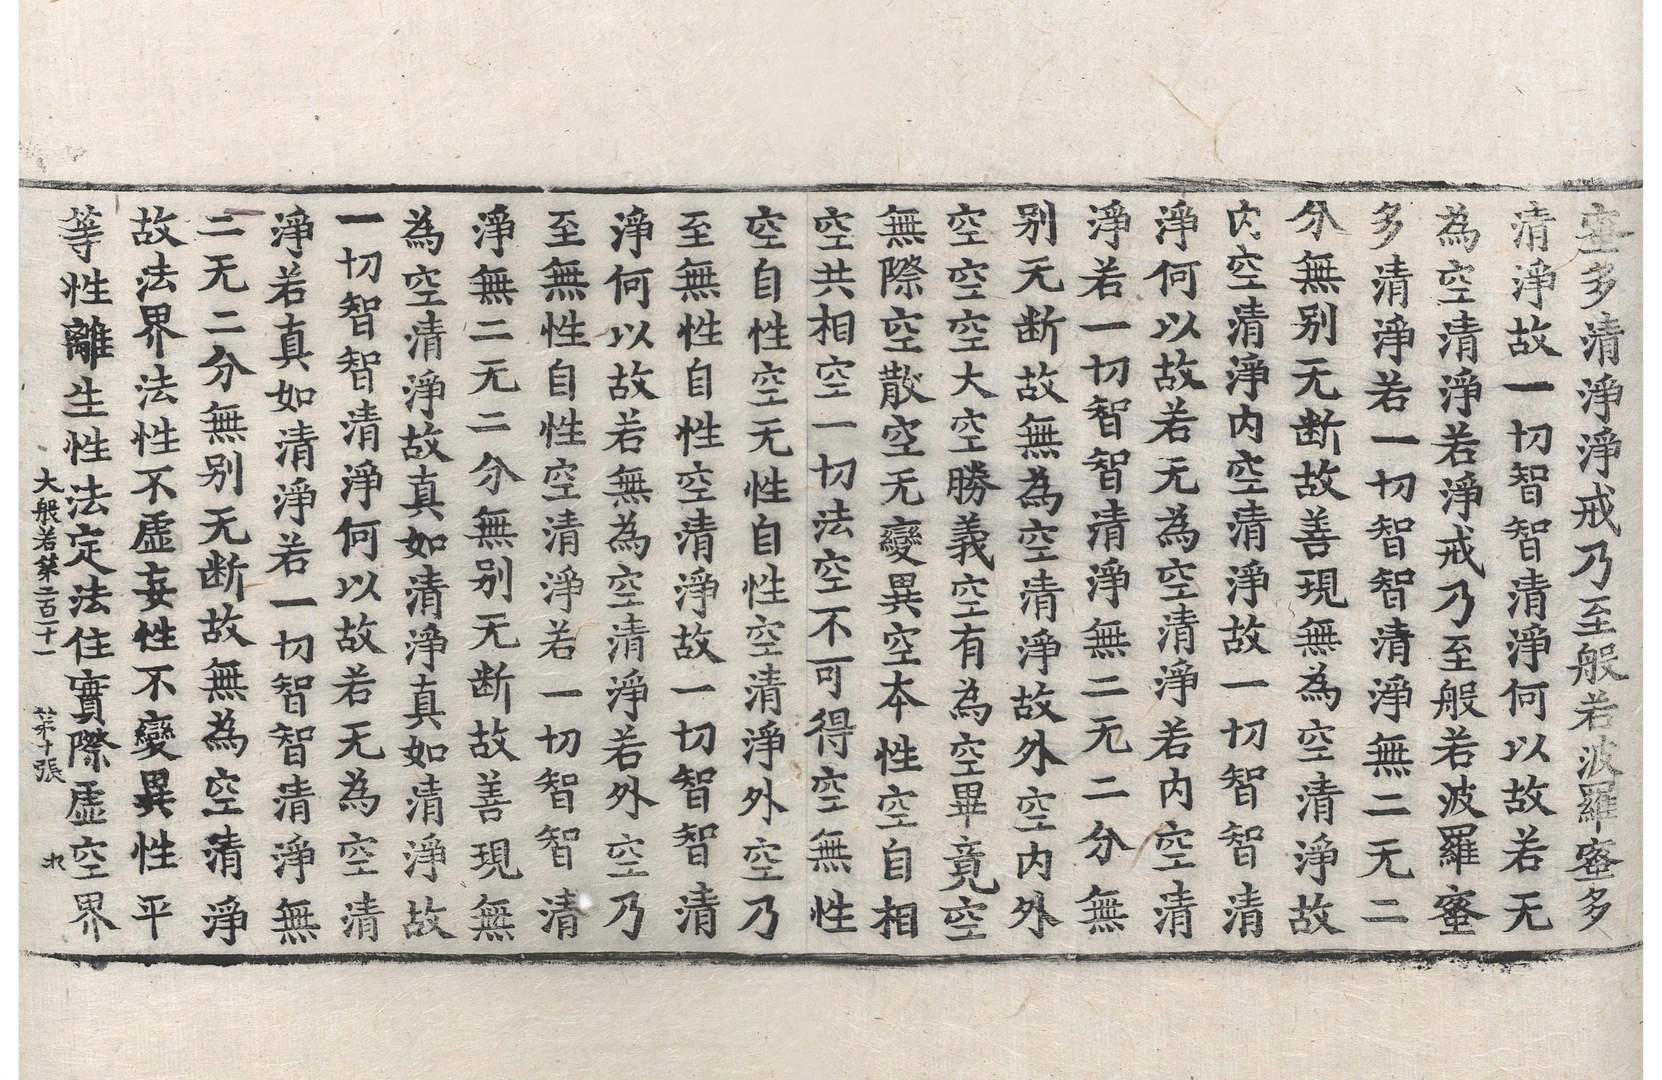 蜜多清淨淨戒乃至般若波羅蜜多
清淨故一切智智清淨何以故若无
為空清淨若淨戒乃至般若波羅蜜
多清淨若一切智智清淨無二无二
分無别无断故善現無為空清淨故
内空清淨内空清淨故一切智智清
淨何以故若无為空清淨若内空清
淨若一切智智清淨無二无二分無
别无断故無為空清淨故外空内外
空空空大空勝義空有為空畢竟空
無際空散空无變異空本性空自相
空共相空一切法空不可得空無性
空自性空无性自性空清淨外空乃
至無性自性空清淨故一切智智清
淨何以故若無為空清淨若外空乃
至無性自性空清淨若一切智智清
淨無二无二分無别无断故善現無
為空清淨故真如清淨真如清淨故
一切智智清淨何以故若无為空清
淨若真如清淨若一切智智清淨無
二无二分無别无断故無為空清淨
故法界法性不虛妄性不變異性平
等性離生性法定法住實際虛空界
大般若苐二百二十一 苐十張